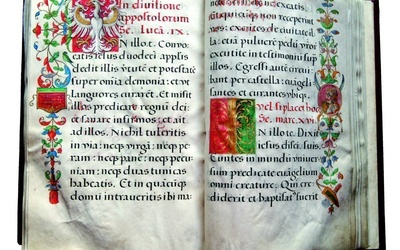 In divisione
appostolorum
Se. Lucā. IX.
N illo t. Convo
catis Iesus duodeci appsis
dedit illis v̄tutē et potestatē
super omnia demonia: et vt
languores curarent. Et misit
illos predicare regnū dei:
et sanare infirmos: et ait
ad illos. Nichil tuleritis
in via: neqȝ virgā: neqȝ pe
ram: neqȝ panē: neqȝ pecu
niam: neqȝ duas tunicas
habeatis. Et in quācūqȝ
domū intraveritis ibi ma
nete: et inde ne exeatis.
quicumqȝ non receperint
vos: exeuntes de civitate
illa: etiā pulverē pedū vr̄or
excutite in testimoniū sup
illos. Egressi autē circui
bant per castella: euāgeli
zantes et curantes vbiqȝ.
Vel si placet hoc
Se. marc. xvi.
N illo t. Dixit
Iesus disc. suis.
Euntes in mundū univer
sum predicate euāgelium
omni creature. Qui cre
diderit et baptisat' fuerit